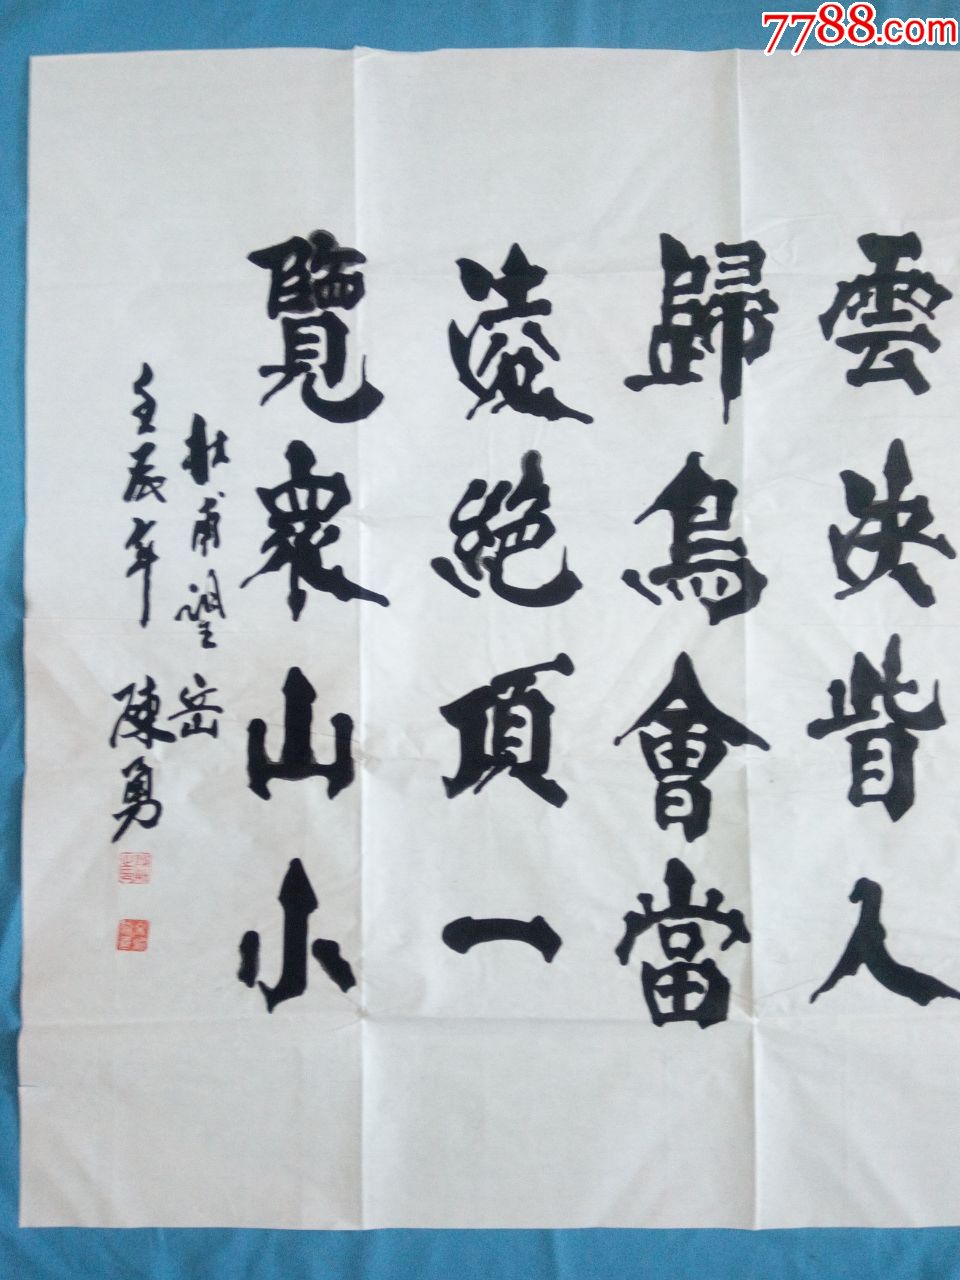 7788.com
雲決眥人
歸鳥會當
淩絕頂一
覽衆山小
杜甫望岳
壬辰年 陳勇